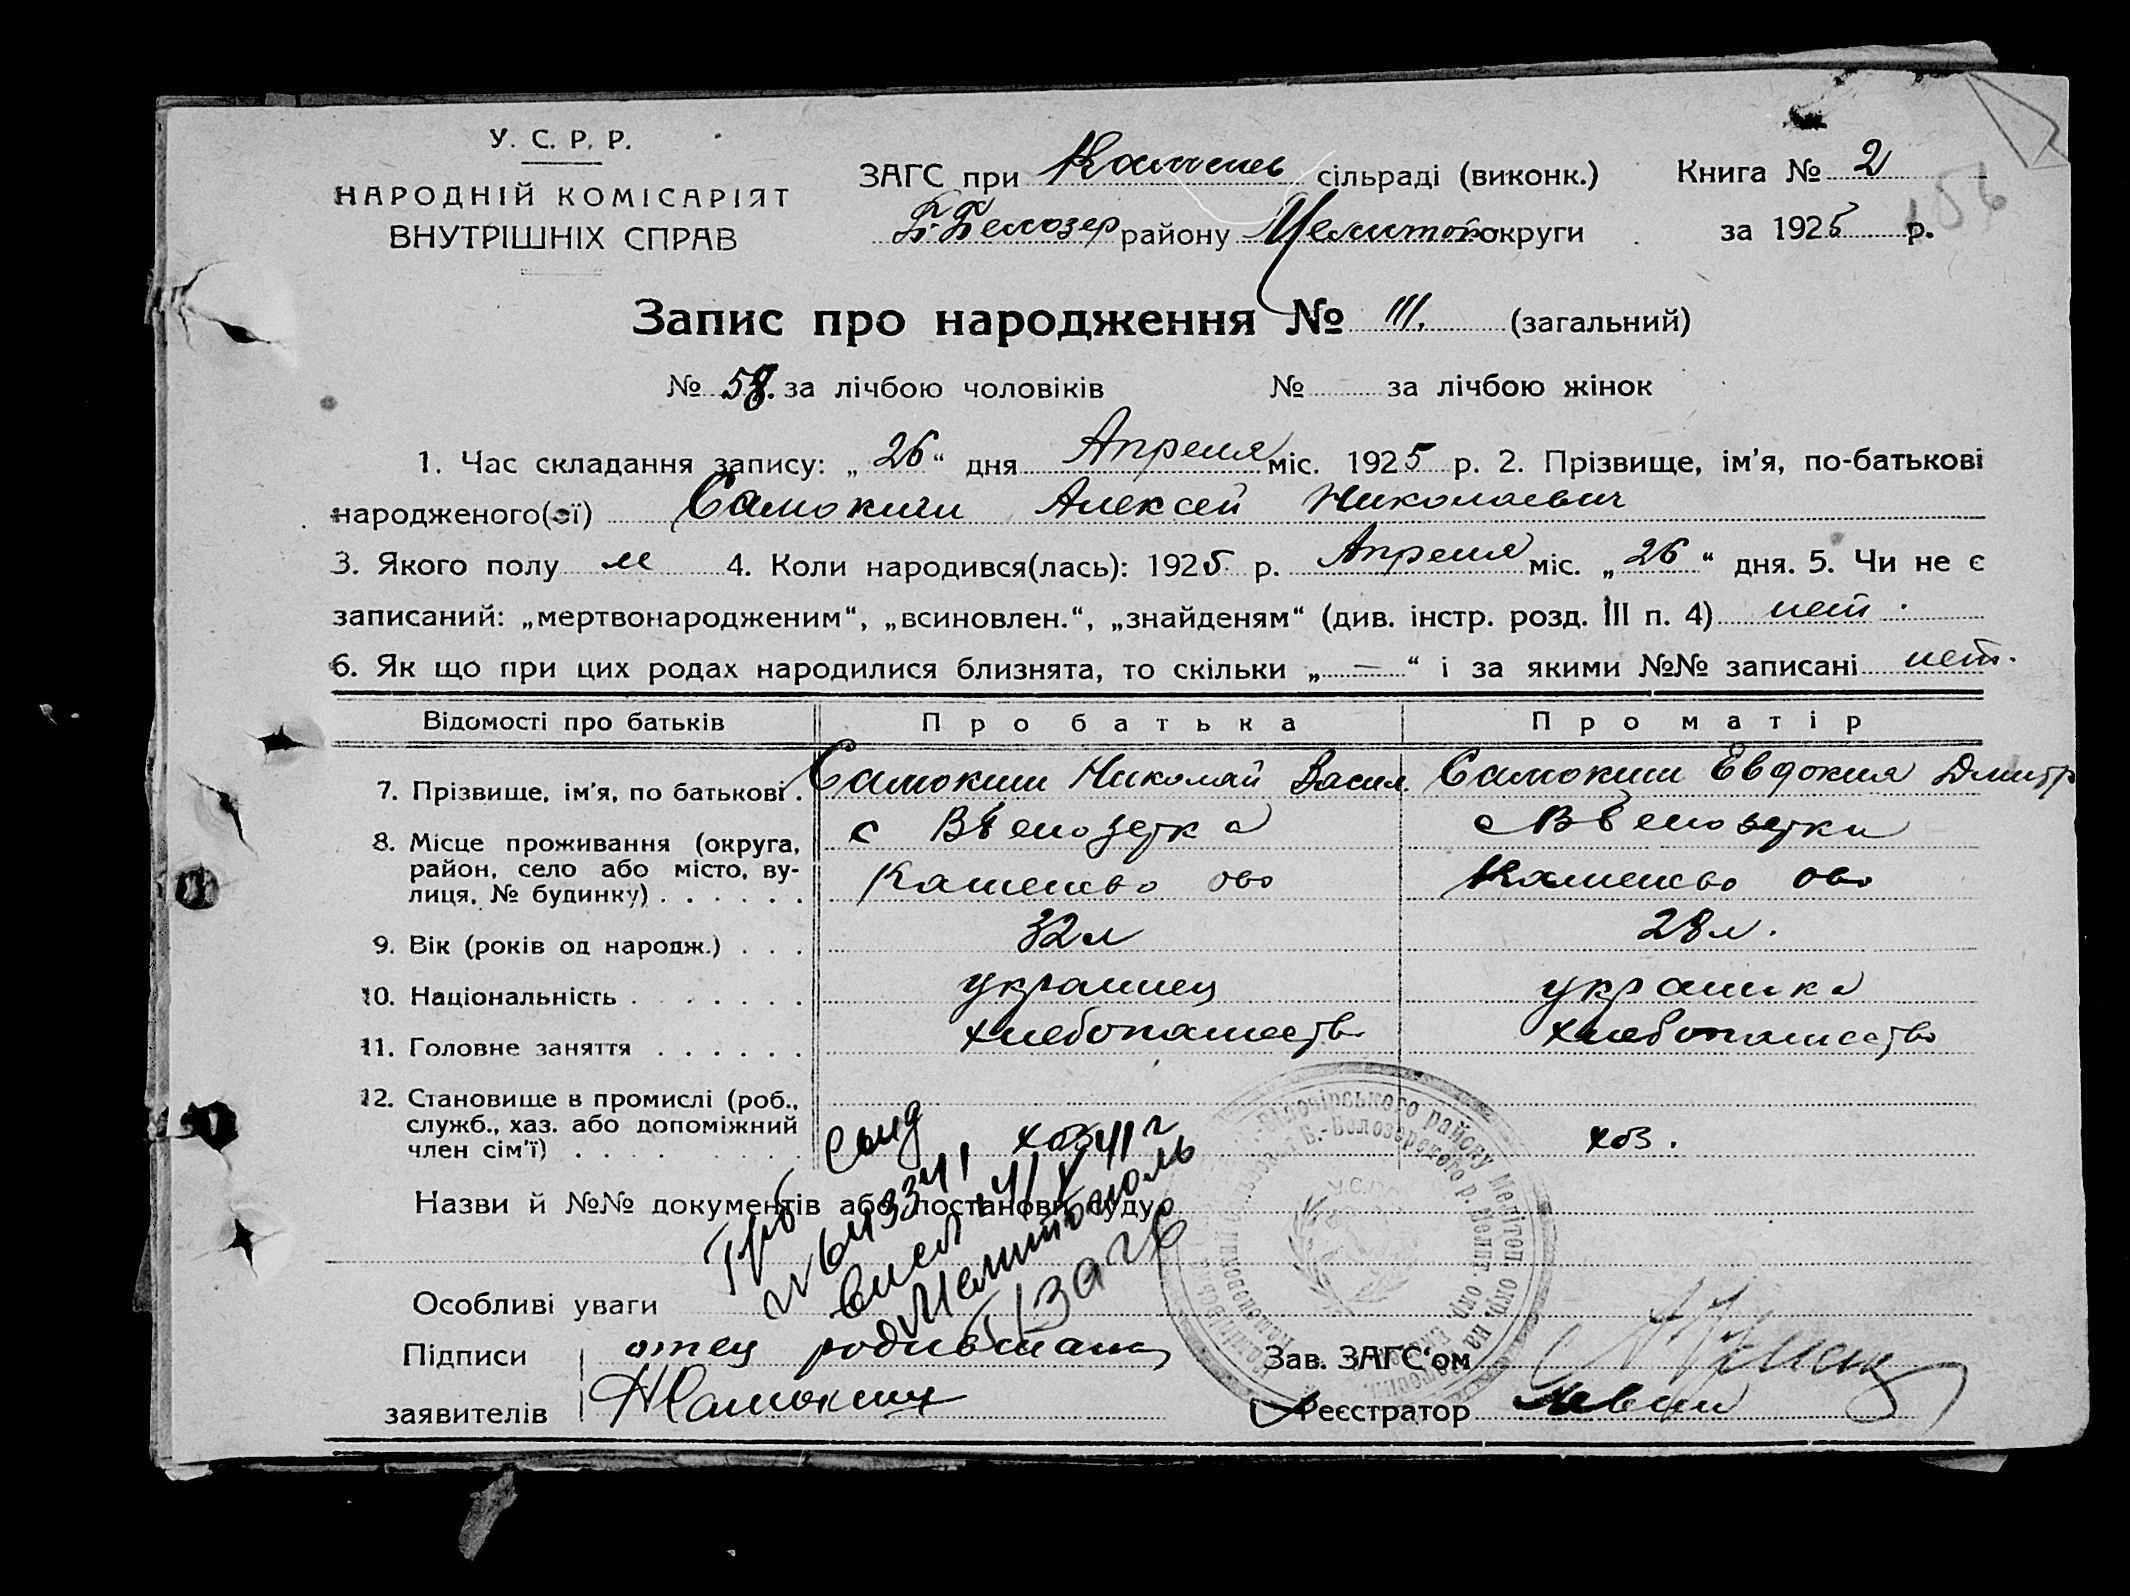 У. С. Р. Р.
НАРОДНІЙ КОМІСАРІЯТ
ВНУТРІШНІХ СПРАВ
ЗАГС при сільраді (виконк.)
Б-Белозер району Мелитоп округи
Книга № 2
за 1925 р.
156
Запис про народження № 111. (загальний)
№ 58. за лічбою чоловіків № за лічбою жінок
1. Час складання запису: „ 26 “ дня Апреля міс. 1925 р. 2. Прізвище, ім’я, по-батькові
народженого(ої) Самокиш Алексей Николаевич
3. Якого полу м 4. Коли народився(лась): 1925 р. Апреля міс. „ 26 “ дня. 5. Чи не є
записаний: „мертвонародженим“, „всиновлен.“, „знайденям“ (див. інстр. розд. III п. 4) нет.
6. Як що при цих родах народилися близнята, то скільки „ — “ і за якими №№ записані нет.
Відомості про батьків Про батька Про матір
7. Прізвище, ім’я, по батькові . Самокиш Николай Васил. Самокиш Евдокия Дмитр
8. Місце проживання (округа, район, село або місто, вулиця, № будинку) . . . . . .
с с
9. Вік (років од народж.) . . . 32 л 28 л.
10. Національність . . . . . . . украинец украинка
11. Головне заняття . . . . . . хлебопашеств хлебопашество
12. Становище в промислі (роб., служб., хаз. або допоміжний член сім’ї) . . . .
хоз хоз.
Назви й №№ документів або постанови суду
Мелитополь
Особливі уваги
Підписи отец
заявителів НСамокиш
Зав. ЗАГС‘ом
Реєстратор